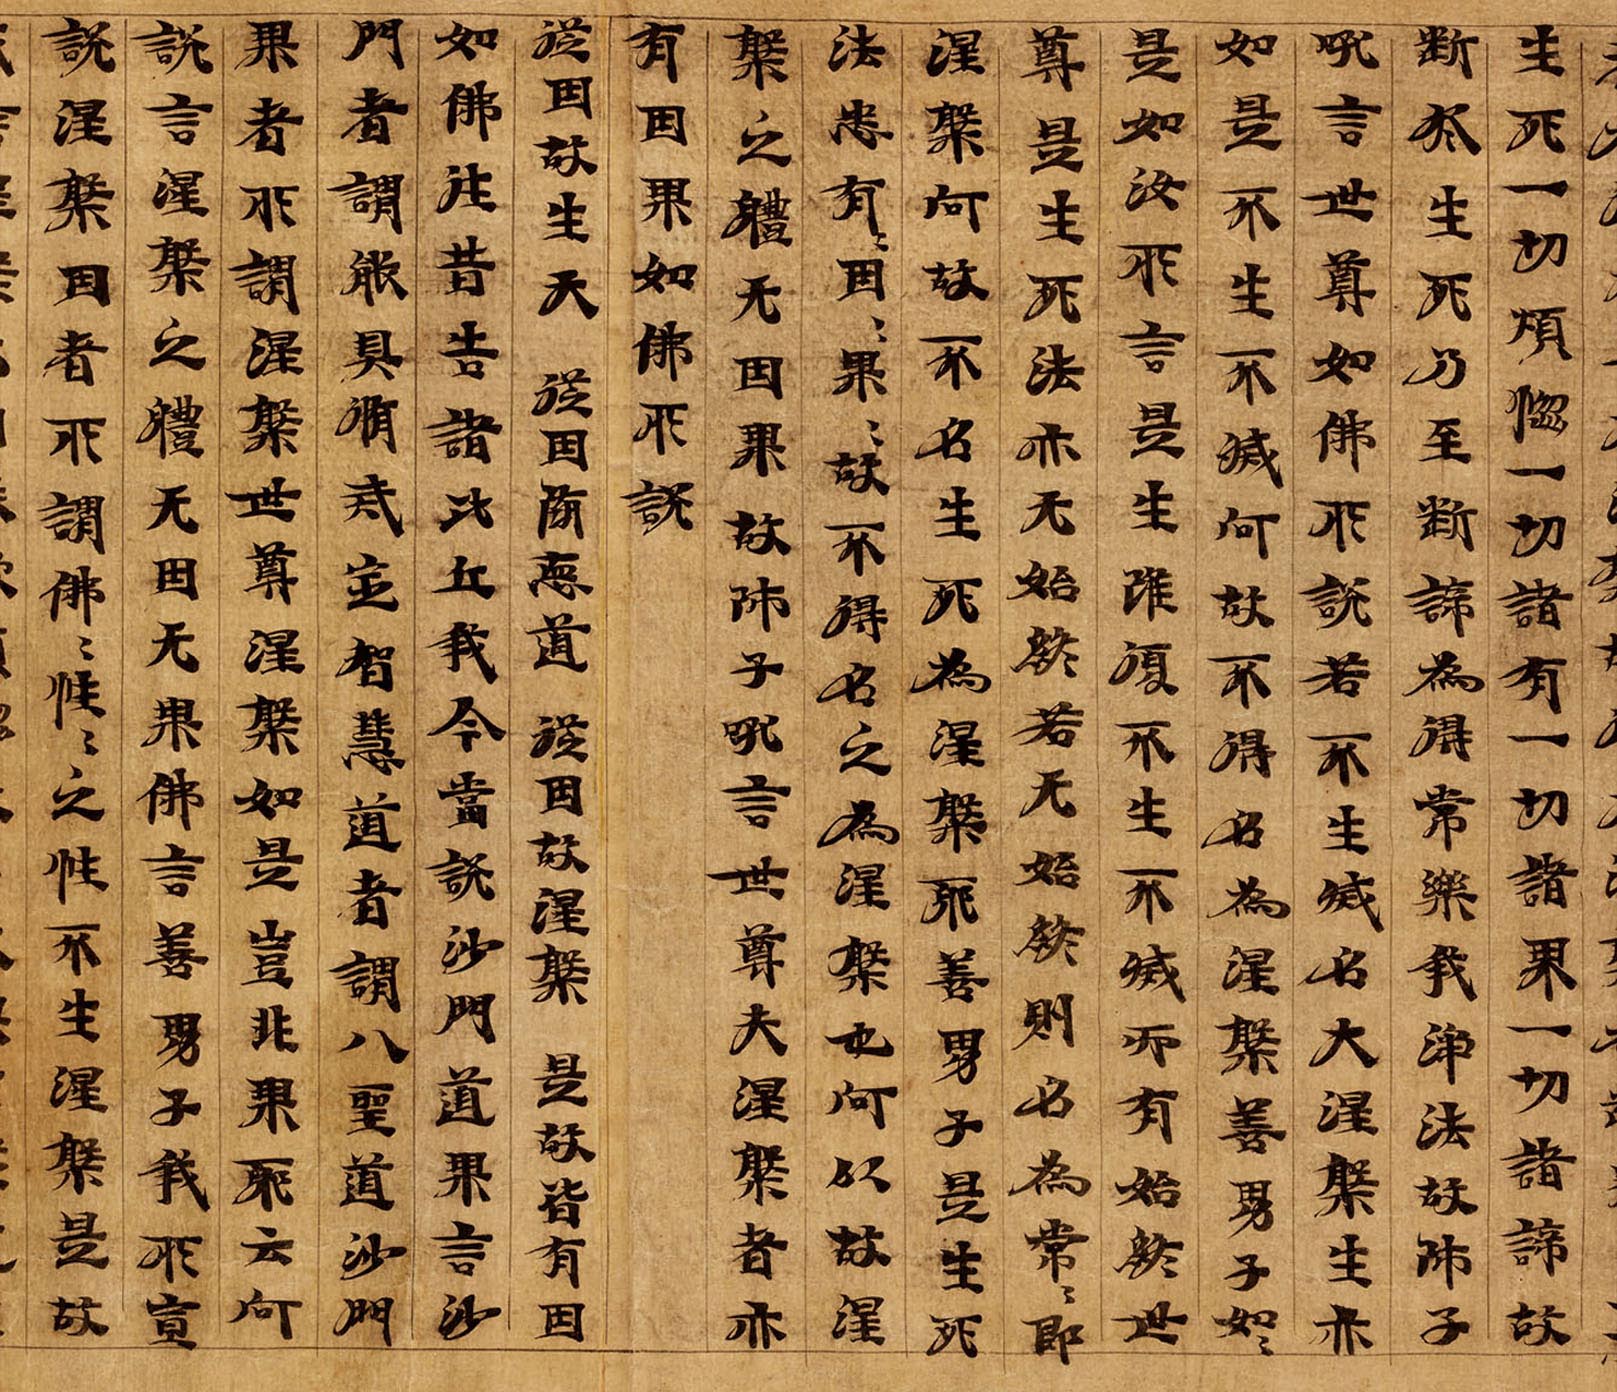 生死一切煩惱一切諸有一切諸果一切諸諦故
断尽生死乃至断諦為得常樂我淨法故師子
吼言世尊如佛所說若不生滅名大涅槃生亦
如是不生不滅何故不得名為涅槃善男子如〻
是如汝所言是生雖復不生不滅而有始終世
尊是生死法亦无始終若无始終則名為常〻即
涅槃何故不名生死為涅槃耶善男子是生死
法悉有〻因〻果〻故不得名之為涅槃也何以故涅
槃之軆无因果故師子吼言世尊夫涅槃者亦
有因果如佛所說
從因故生天 從因墮惡道 從因故涅槃 是故皆有因
如佛往昔告諸比丘我今當說沙門道果言沙
門者謂能具脩戒定智慧道者謂八聖道沙門
果者所謂涅槃世尊涅槃如是豈非果耶云何
說言涅槃之軆无因无果佛言善男子我所宣
說涅槃因者所謂佛〻性〻之性不生涅槃是故